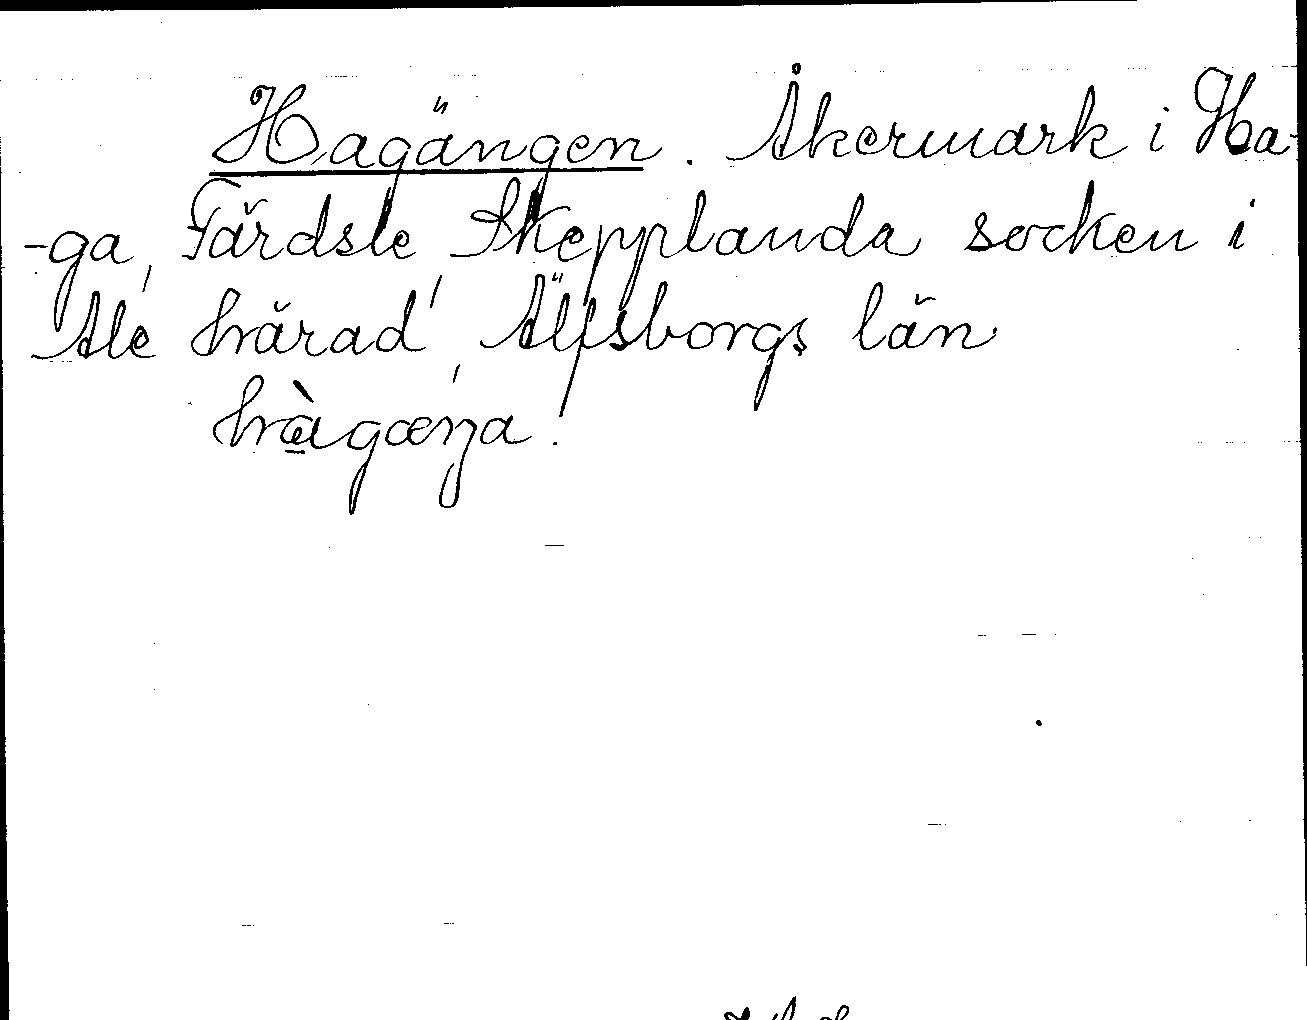 Hagängen. Åkermark i Ha-
-ga, Färdsle, Skepplanda socken i
Ale härad, Älfsborgs län
hàgæŋa.